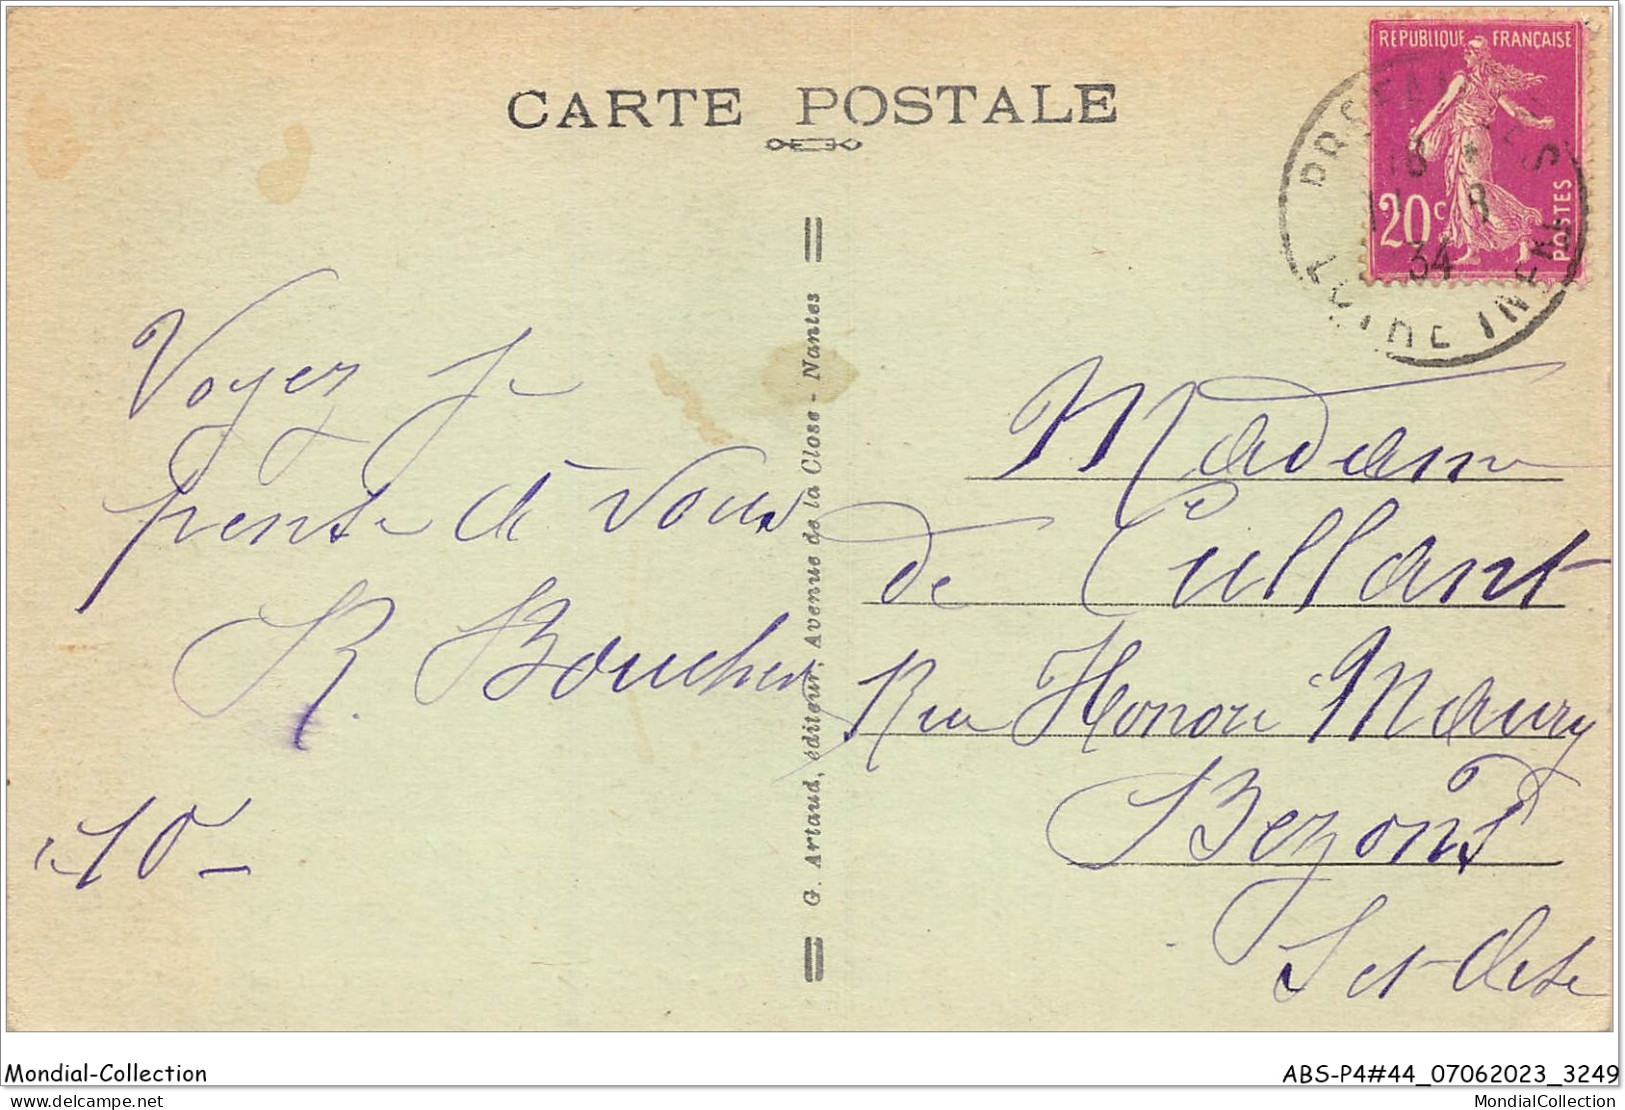 CARTE POSTALE
RÉPUBLIQUE FRANÇAISE
20c
POSTES
34
LOIRE INFRE
Voyez je
pense à vous
R. Boucher
10 -
G. Artaud, éditeur, Avenue de la Close - Nantes
Madame
de Cullant
Rue Honoré Maury
Bezons
S et Oise
Mondial-Collection
ABS-P4#44_07062023_3249
www.delcampe.net
MondialCollection